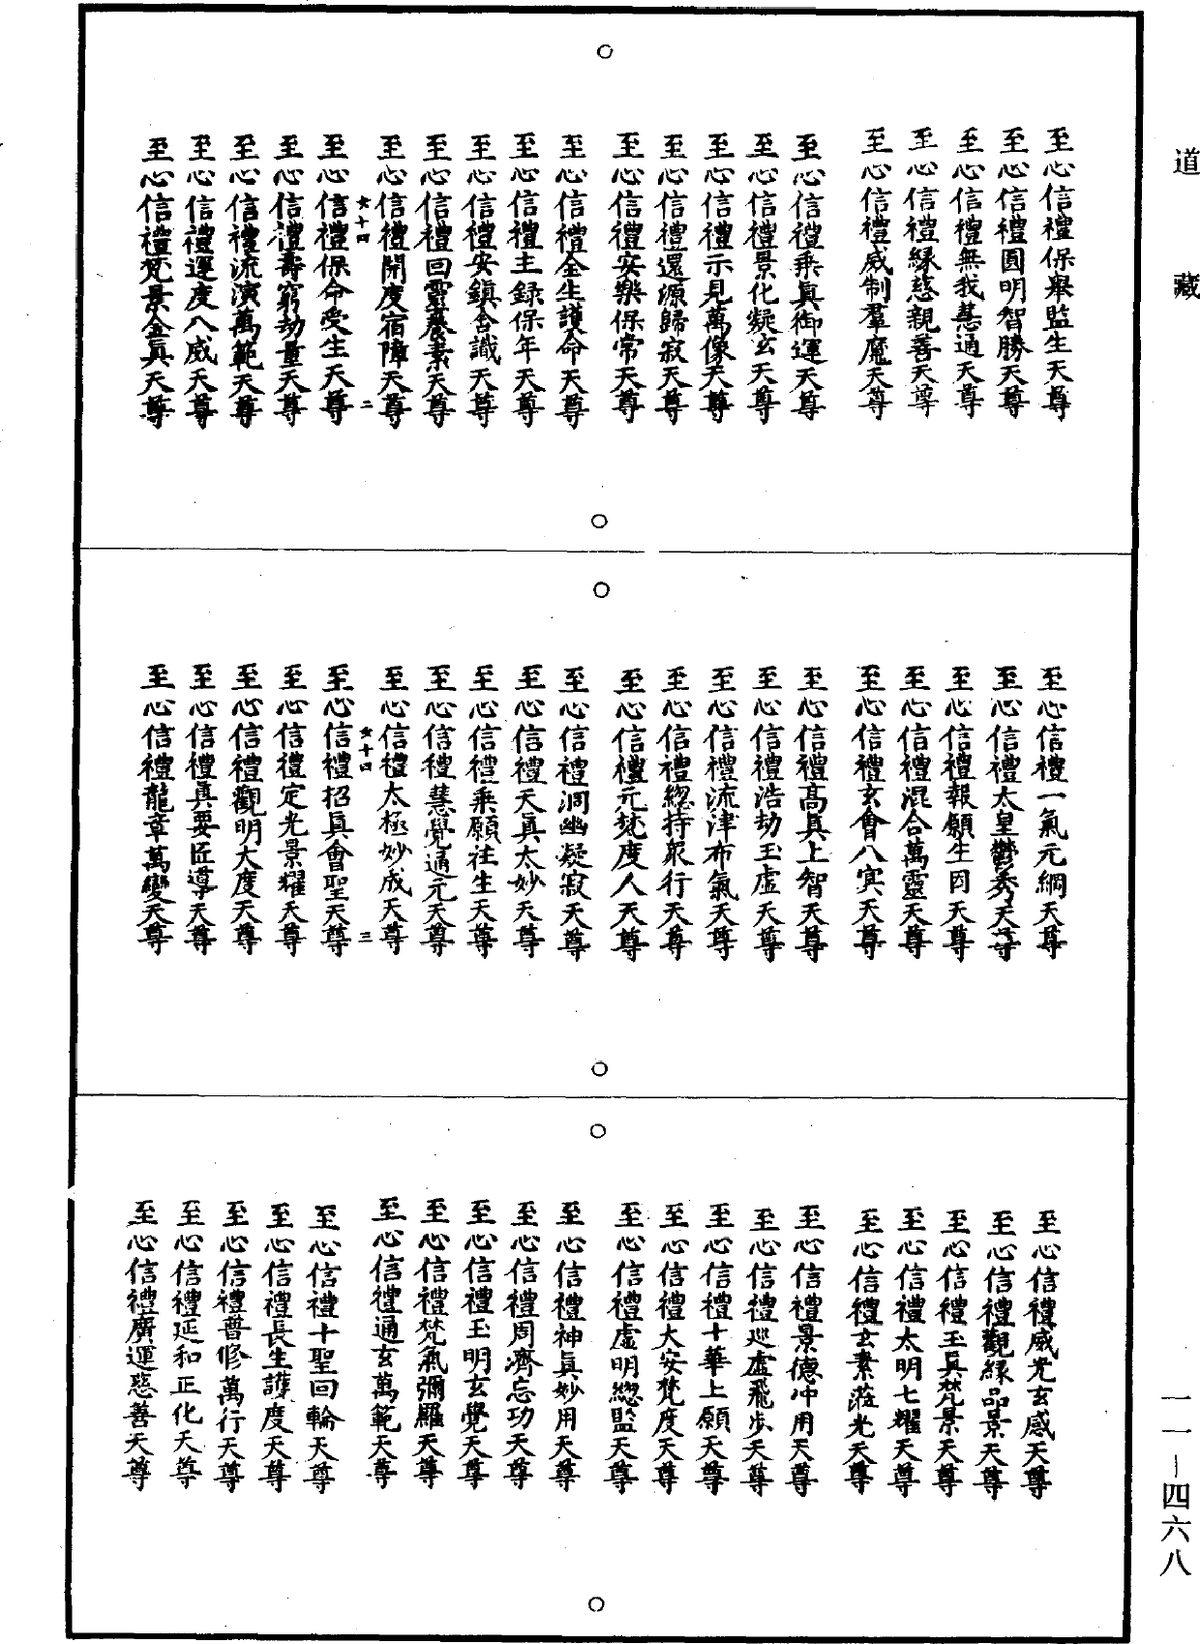 道藏
至心信禮保舉監生天尊
至心信禮圓明智勝天尊
至心信禮無我慧通天尊
至心信禮緣慈親善天尊
至心信禮威制羣魔天尊
至心信禮乘眞御運天尊
至心信禮景化凝玄天尊
至心信禮示見萬像天尊
至心信禮還源歸寂天尊
至心信禮安樂保常天尊
至心信禮全生護命天尊
至心信禮主録保年天尊
至心信禮安鎮含識天尊
至心信禮回靈養素天尊
至心信禮開度宿障天尊
女十四 二
至心信禮保命受生天尊
至心信禮壽窮劫量天尊
至心信禮流演萬範天尊
至心信禮運度八威天尊
至心信禮梵景金眞天尊
至心信禮一氣元綱天尊
至心信禮太皇鬱秀天尊
至心信禮報願生因天尊
至心信禮混合萬靈天尊
至心信禮玄會八冥天尊
至心信禮高眞上智天尊
至心信禮浩劫玉虛天尊
至心信禮流津布氣天尊
至心信禮緫持衆行天尊
至心信禮元梵度人天尊
至心信禮洞幽凝寂天尊
至心信禮天眞太妙天尊
至心信禮乘願往生天尊
至心信禮慧覺通元天尊
至心信禮太極妙成天尊
女十四 三
至心信禮招眞會聖天尊
至心信禮定光景耀天尊
至心信禮觀明大度天尊
至心信禮眞要匠導天尊
至心信禮龍章萬變天尊
至心信禮威光玄感天尊
至心信禮觀緣品景天尊
至心信禮玉眞梵景天尊
至心信禮太明七耀天尊
至心信禮玄素流光天尊
至心信禮景德冲用天尊
至心信禮巡虛飛步天尊
至心信禮十華上願天尊
至心信禮大安梵度天尊
至心信禮虛明緫監天尊
至心信禮神眞妙用天尊
至心信禮周濟忘功天尊
至心信禮玉明玄覺天尊
至心信禮梵氣彌羅天尊
至心信禮通玄萬範天尊
至心信禮十聖回輪天尊
至心信禮長生護度天尊
至心信禮普修萬行天尊
至心信禮延和正化天尊
至心信禮廣運慈善天尊
一一—四六八